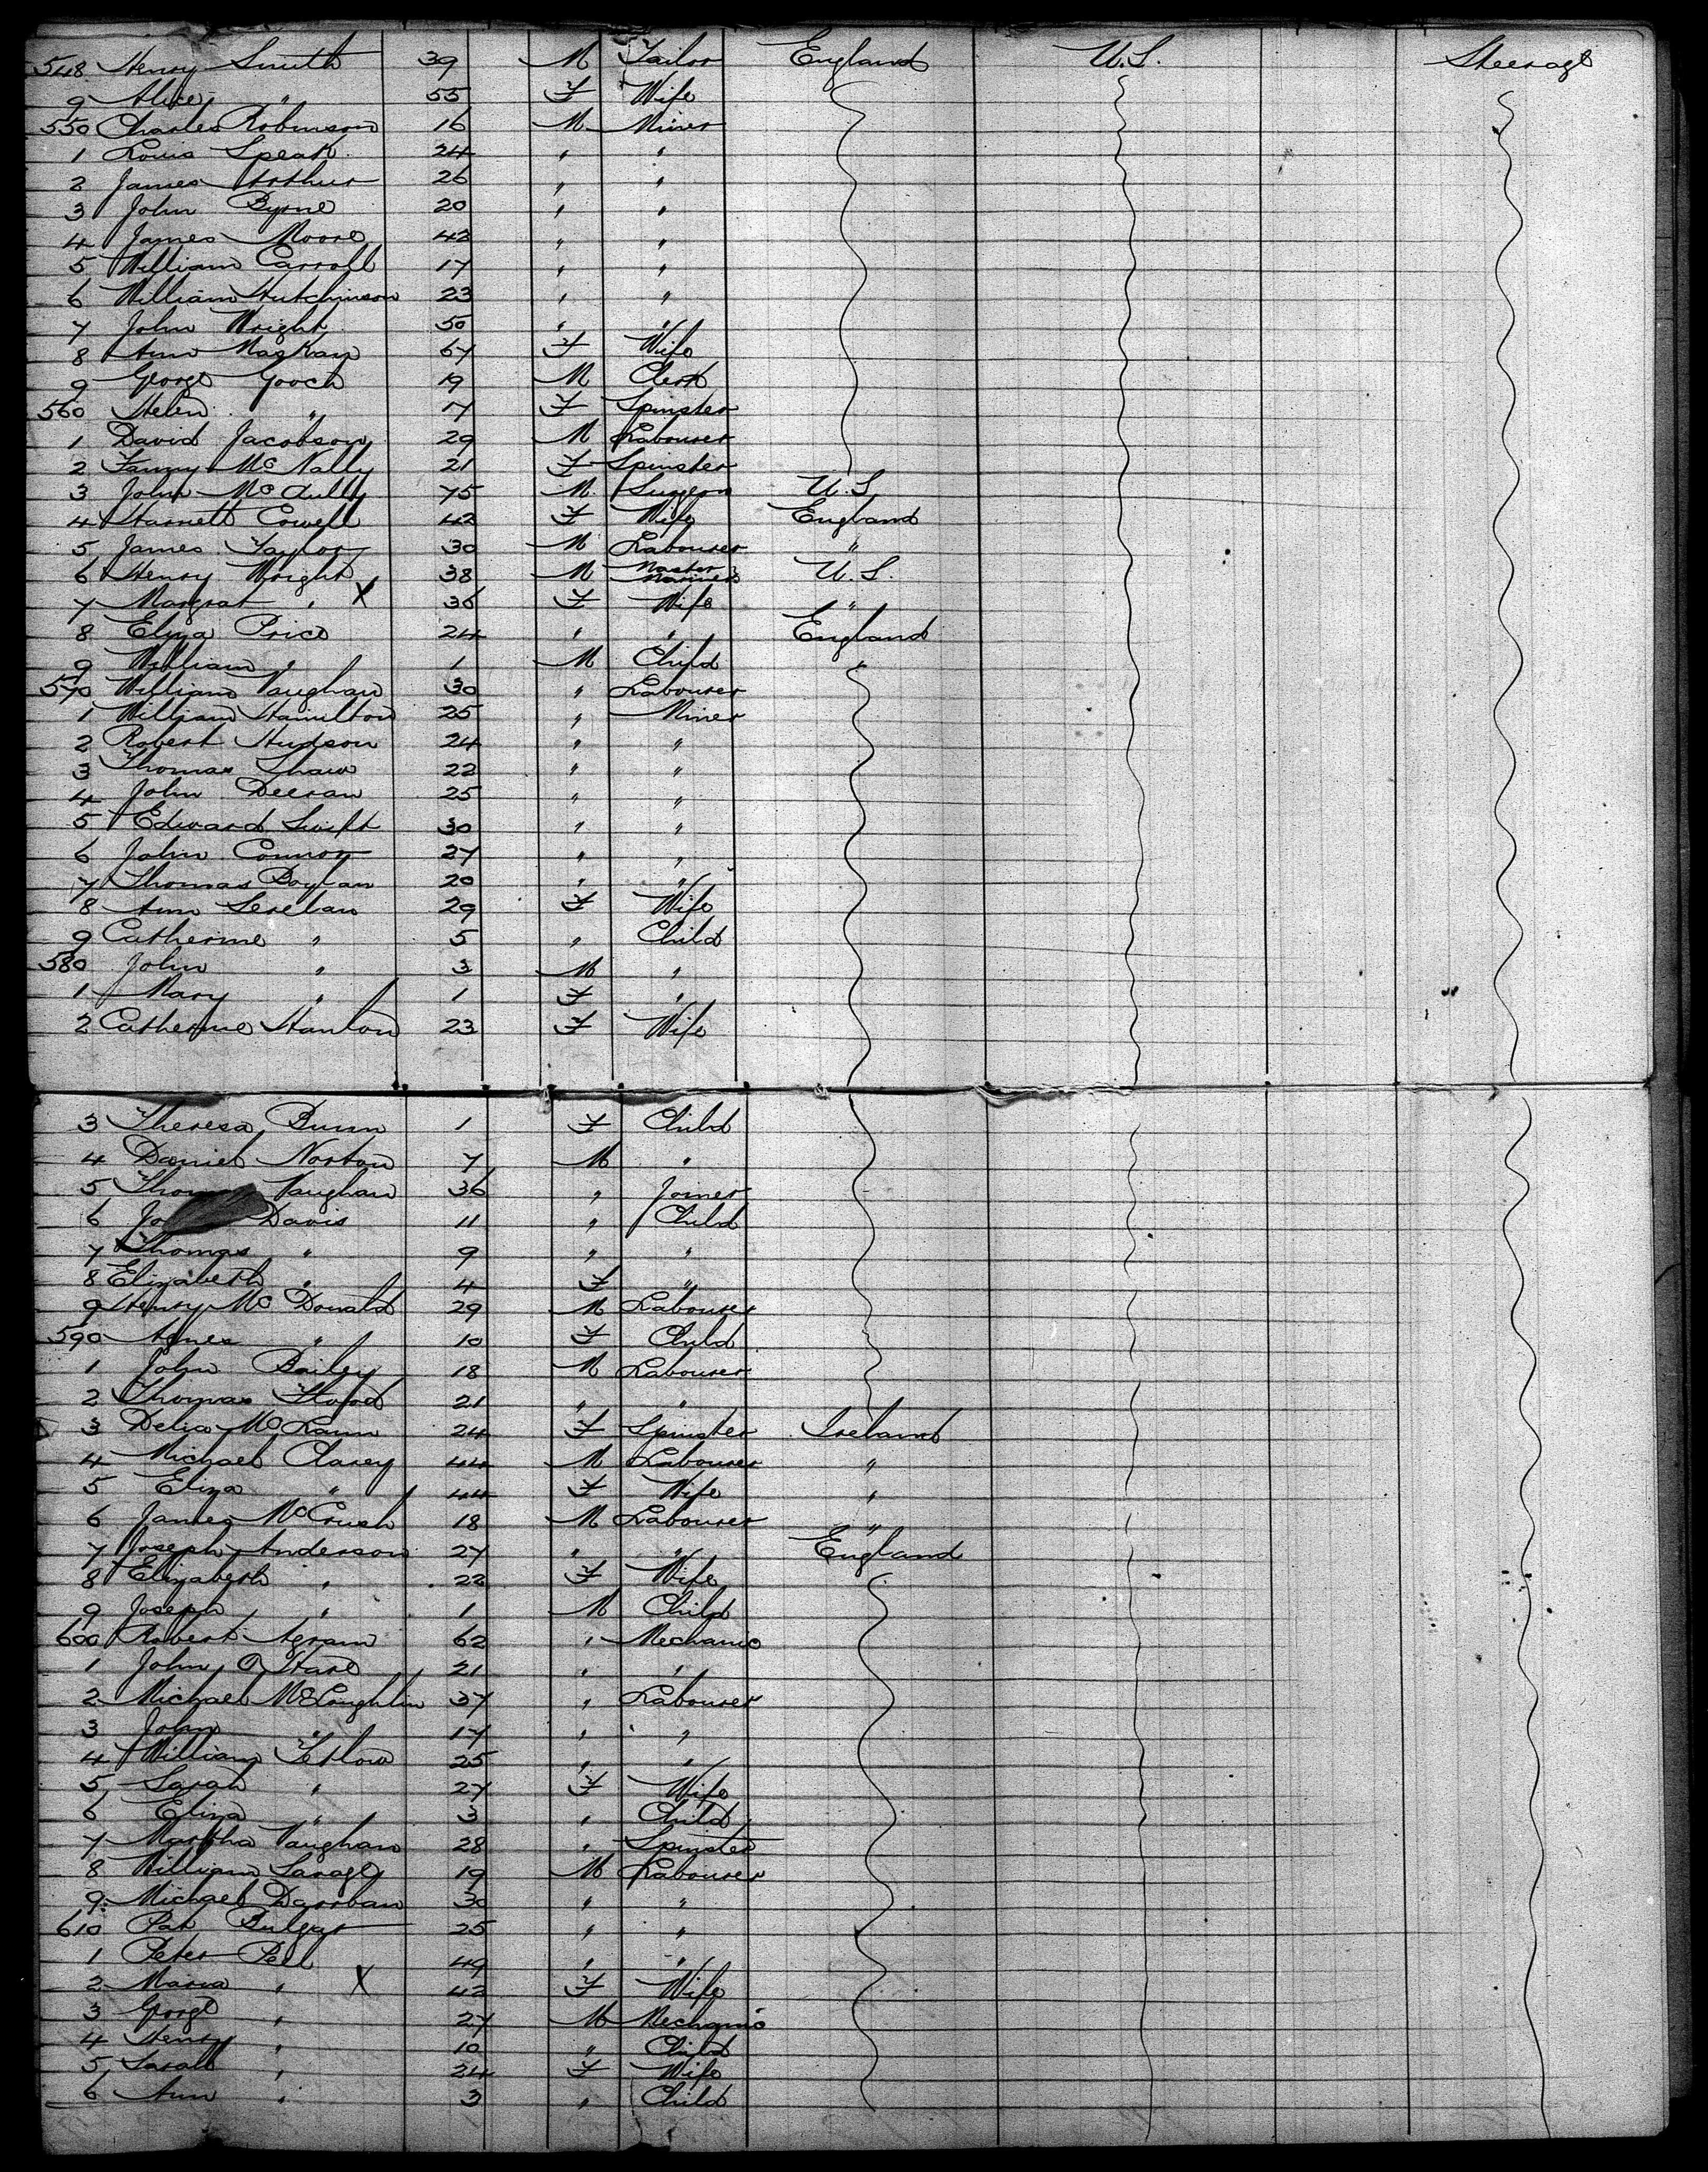 548 Henry Smith 39 M Tailor England U.S. Steerage
9 Alice " 55 F Wife
550 Charles Robinson 16 M Miner
1 Louis Speak 24 " "
2 James Arthur 26 " "
3 John Byrne 20 " "
4 James Moore 42 " "
5 William Carroll 17 " "
6 William Hutchinson 23 " "
7 John Wright 50 " "
8 Ann 67 F Wife
9 George Gooch 19 M Clerk
560 Helen " 17 F Spinster
1 David Jacobson 29 M Labourer
2 Fanny McNally 21 F Spinster
3 John McAully 75 M Surgeon U.S.
4 Harnett Cowell 42 F Wife England
5 James Taylor 30 M Labourer "
6 Henry Wright 38 M Master Mariner U.S.
7 Margrat " X 36 F Wife "
8 Eliza Price 24 " " England
9 William " 1 M Child "
570 William Vaughan 30 " Labourer
1 William Hamilton 25 " Miner
2 Robert Hudson 24 " "
3 Thomas Shaw 22 " "
4 John Deeran 25 " "
5 Edward Swift 30 " "
6 John Connor 27 " "
7 Thomas Boylan 20 " "
8 Ann 29 F Wife
9 Catherine " 5 " Child
580 John " 3 M "
1 Mary " 1 F "
2 Catherine Hanlon 23 F Wife
3 Theresa Bunn 1 F Child
4 Daniel Norton 7 M "
5 Vaughan 36 " Joiner
6 Davis 11 " Child
7 Thomas " 9 " "
8 Elizabeth " 4 F "
9 Henry McDonald 29 M Labourer
590 Agnes " 10 F Child
1 John Bailey 18 M Labourer
2 Thomas 21 " "
3 Delia McCann 24 F Spinster Ireland
4 Michael Clarey 44 M Labourer "
5 Eliza " 44 F Wife "
6 James McCrush 18 M Labourer "
7 Joseph Anderson 27 " " England
8 Elizabeth " 22 F Wife
9 Joseph " 1 M Child
600 Robert Agram 62 " Mechanic
1 John O'Hare 21 " "
2 Michael McLoughlin 37 " Labourer
3 John " 17 " "
4 William Tetlow 25 " "
5 Sarah " 27 F Wife
6 Eliza " 3 " Child
7 Martha Vaughan 28 " Spinster
8 William Savage 19 M Labourer
9 Michael 30 " "
610 Pat Bulger 25 " "
1 Peter Pell 49 " "
2 Maria " X 42 F Wife
3 George " 27 M Mechanic
4 Henry " 10 " Child
5 Sarah " 24 F Wife
6 Ann " 3 " Child